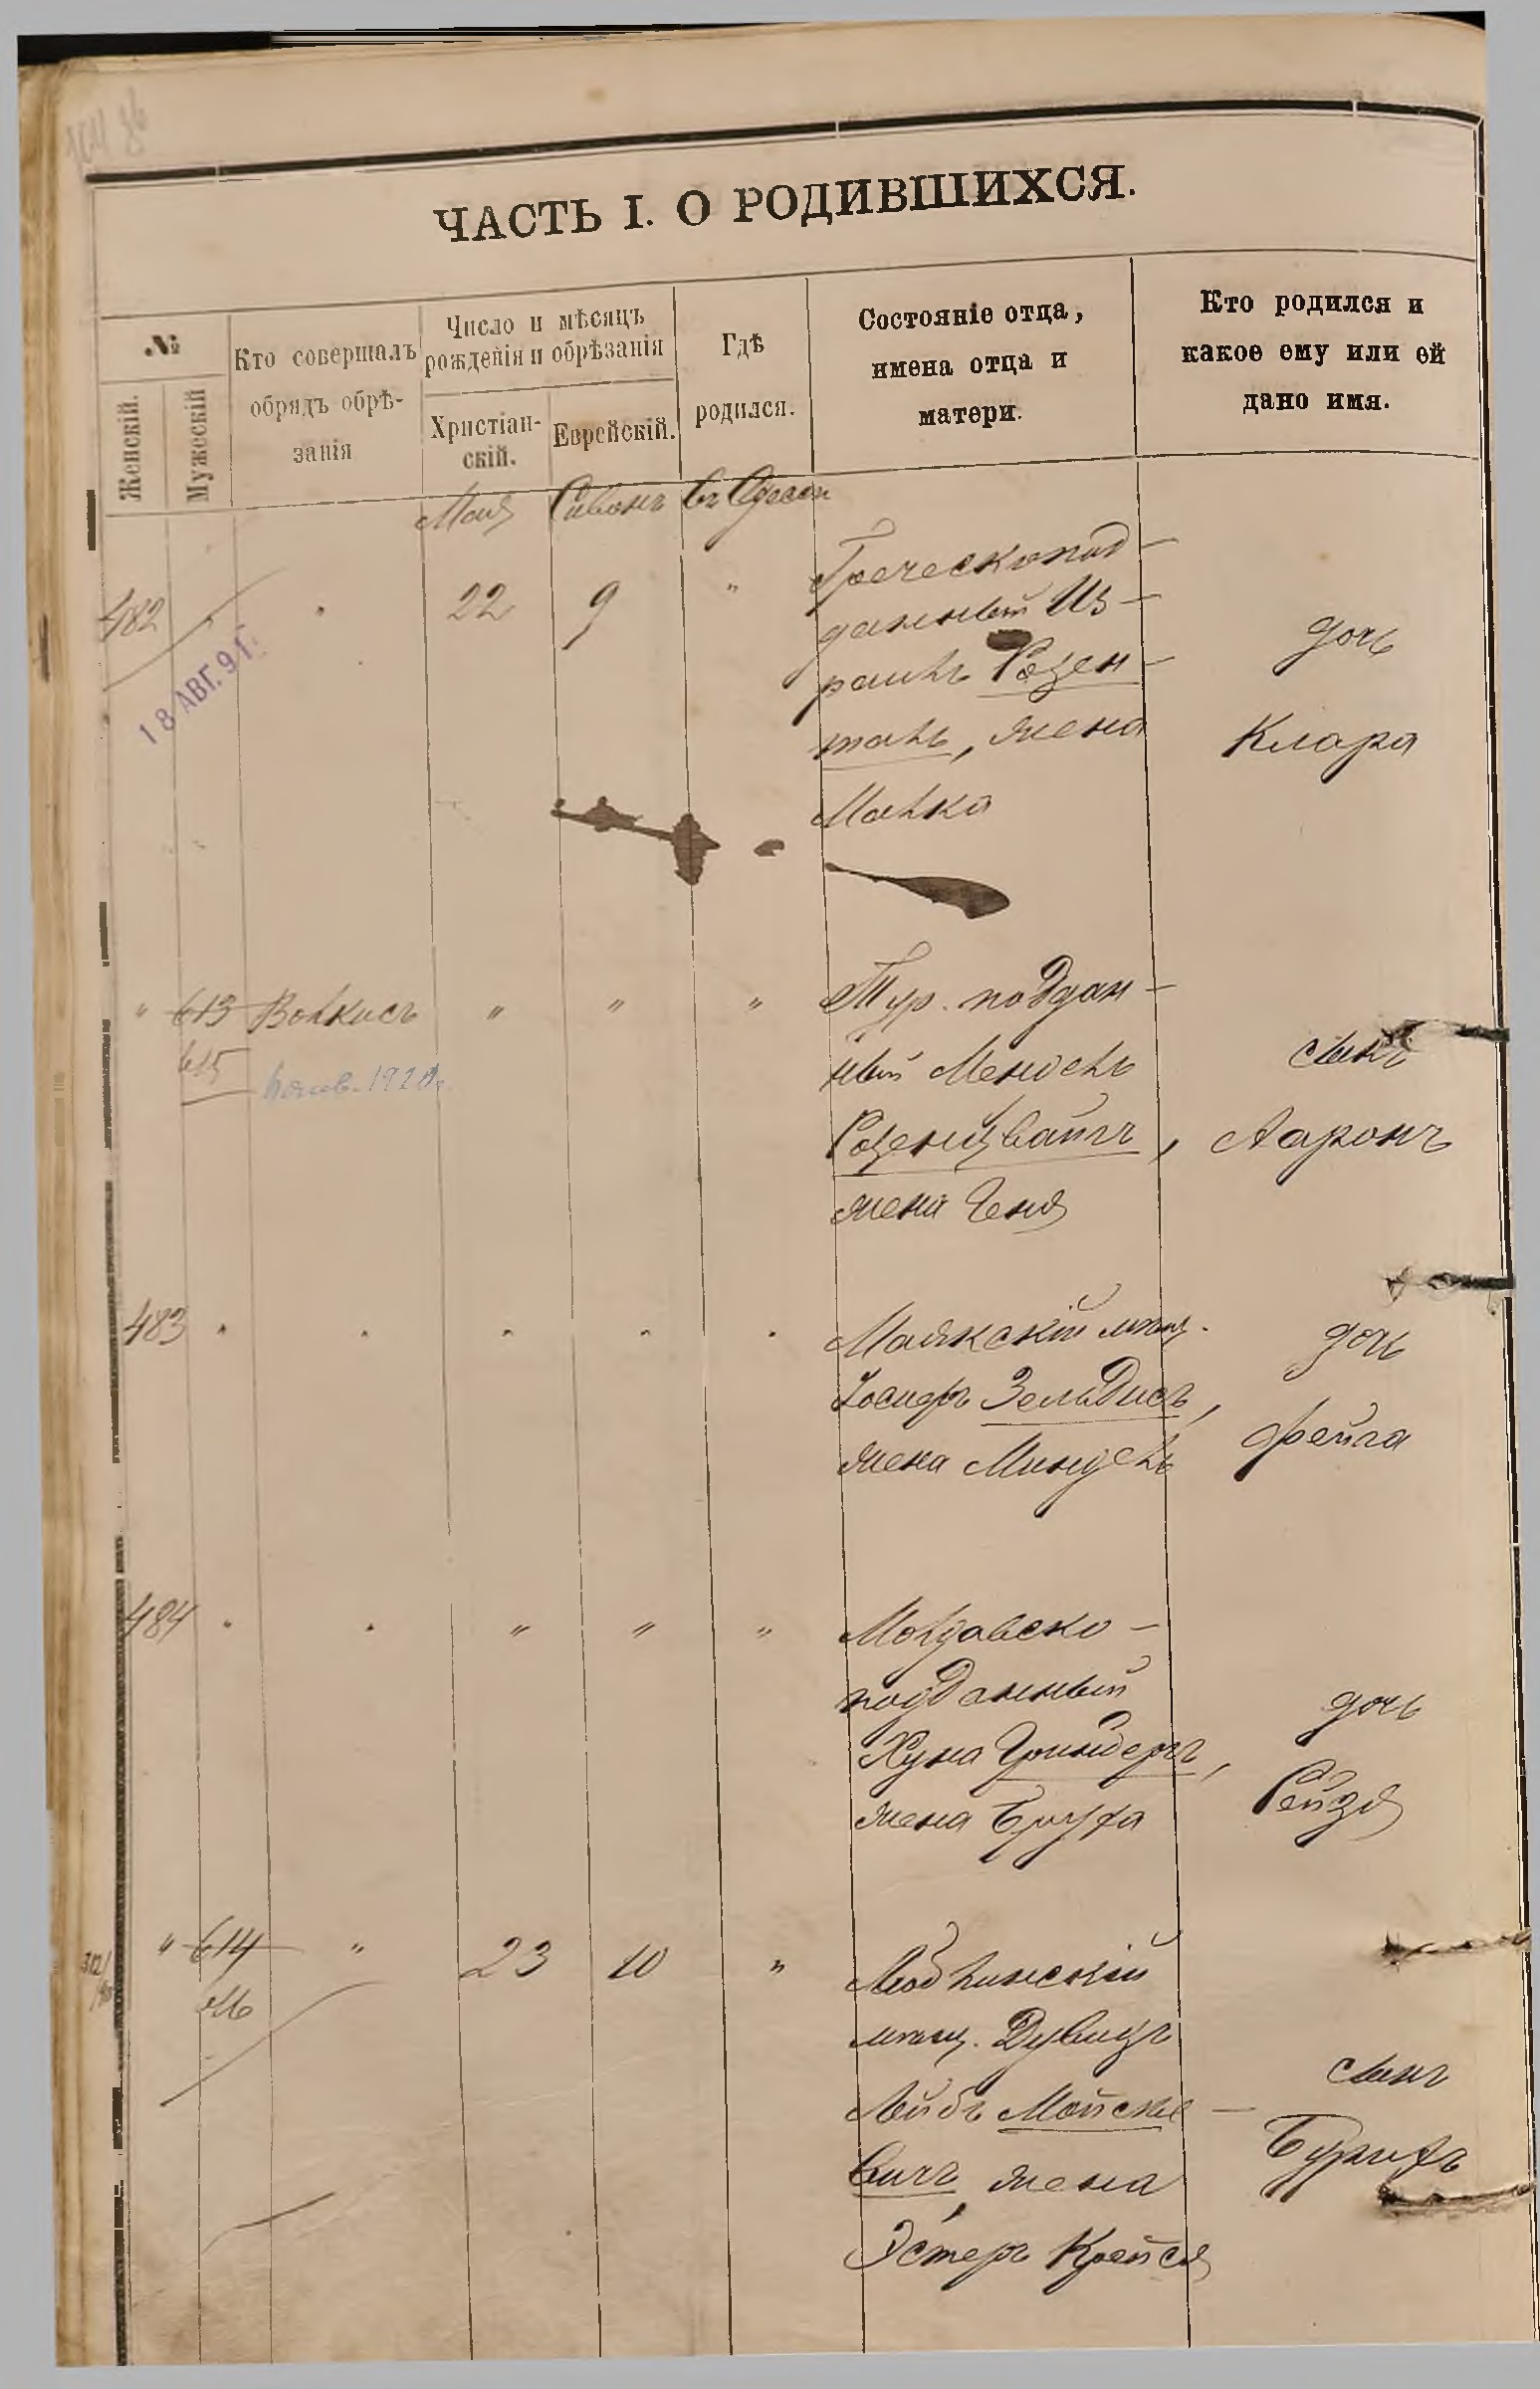 ЧАСТЬ I. О РОДИВШИХСЯ.
№
Женскій.
Мужескій
Кто совершалъ
обрядъ обрѣ-
занія
Число и мѣсяцъ
рожденія и обрѣзанія
Христіан-
скій.
Еврейскій.
Гдѣ
родился.
Состояніе отца,
имена отца и
матери.
Кто родился и
какое ему или ей
дано имя.
Мая Сивонъ Въ Одессе
482 " " 22 9 "
Греческопод-
данный Из-
раиль Розен-
таль, жена
Малка
дочь
Клара
18 АВГ. 91 Г.
" 613 Волкисъ " " "
615
1920 г.
Тур. поддан-
ный Мендель
Розенцвайгъ,
жена Геня
сынъ
Ааронъ
483 " " " " "
Маякскій мѣщ.
Іосифъ Зельдисъ,
жена Миндель
дочь
Фейга
484 " " " " "
Молдавско-
подданный
Хуна Гринбергъ,
жена Бруха
дочь
Рейзя
" 614 " 23 10 "
616
мѣщ. Дувидъ
Лейбъ Мойске-
вичъ, жена
Эстеръ Крейся
сынъ
Бурихъ